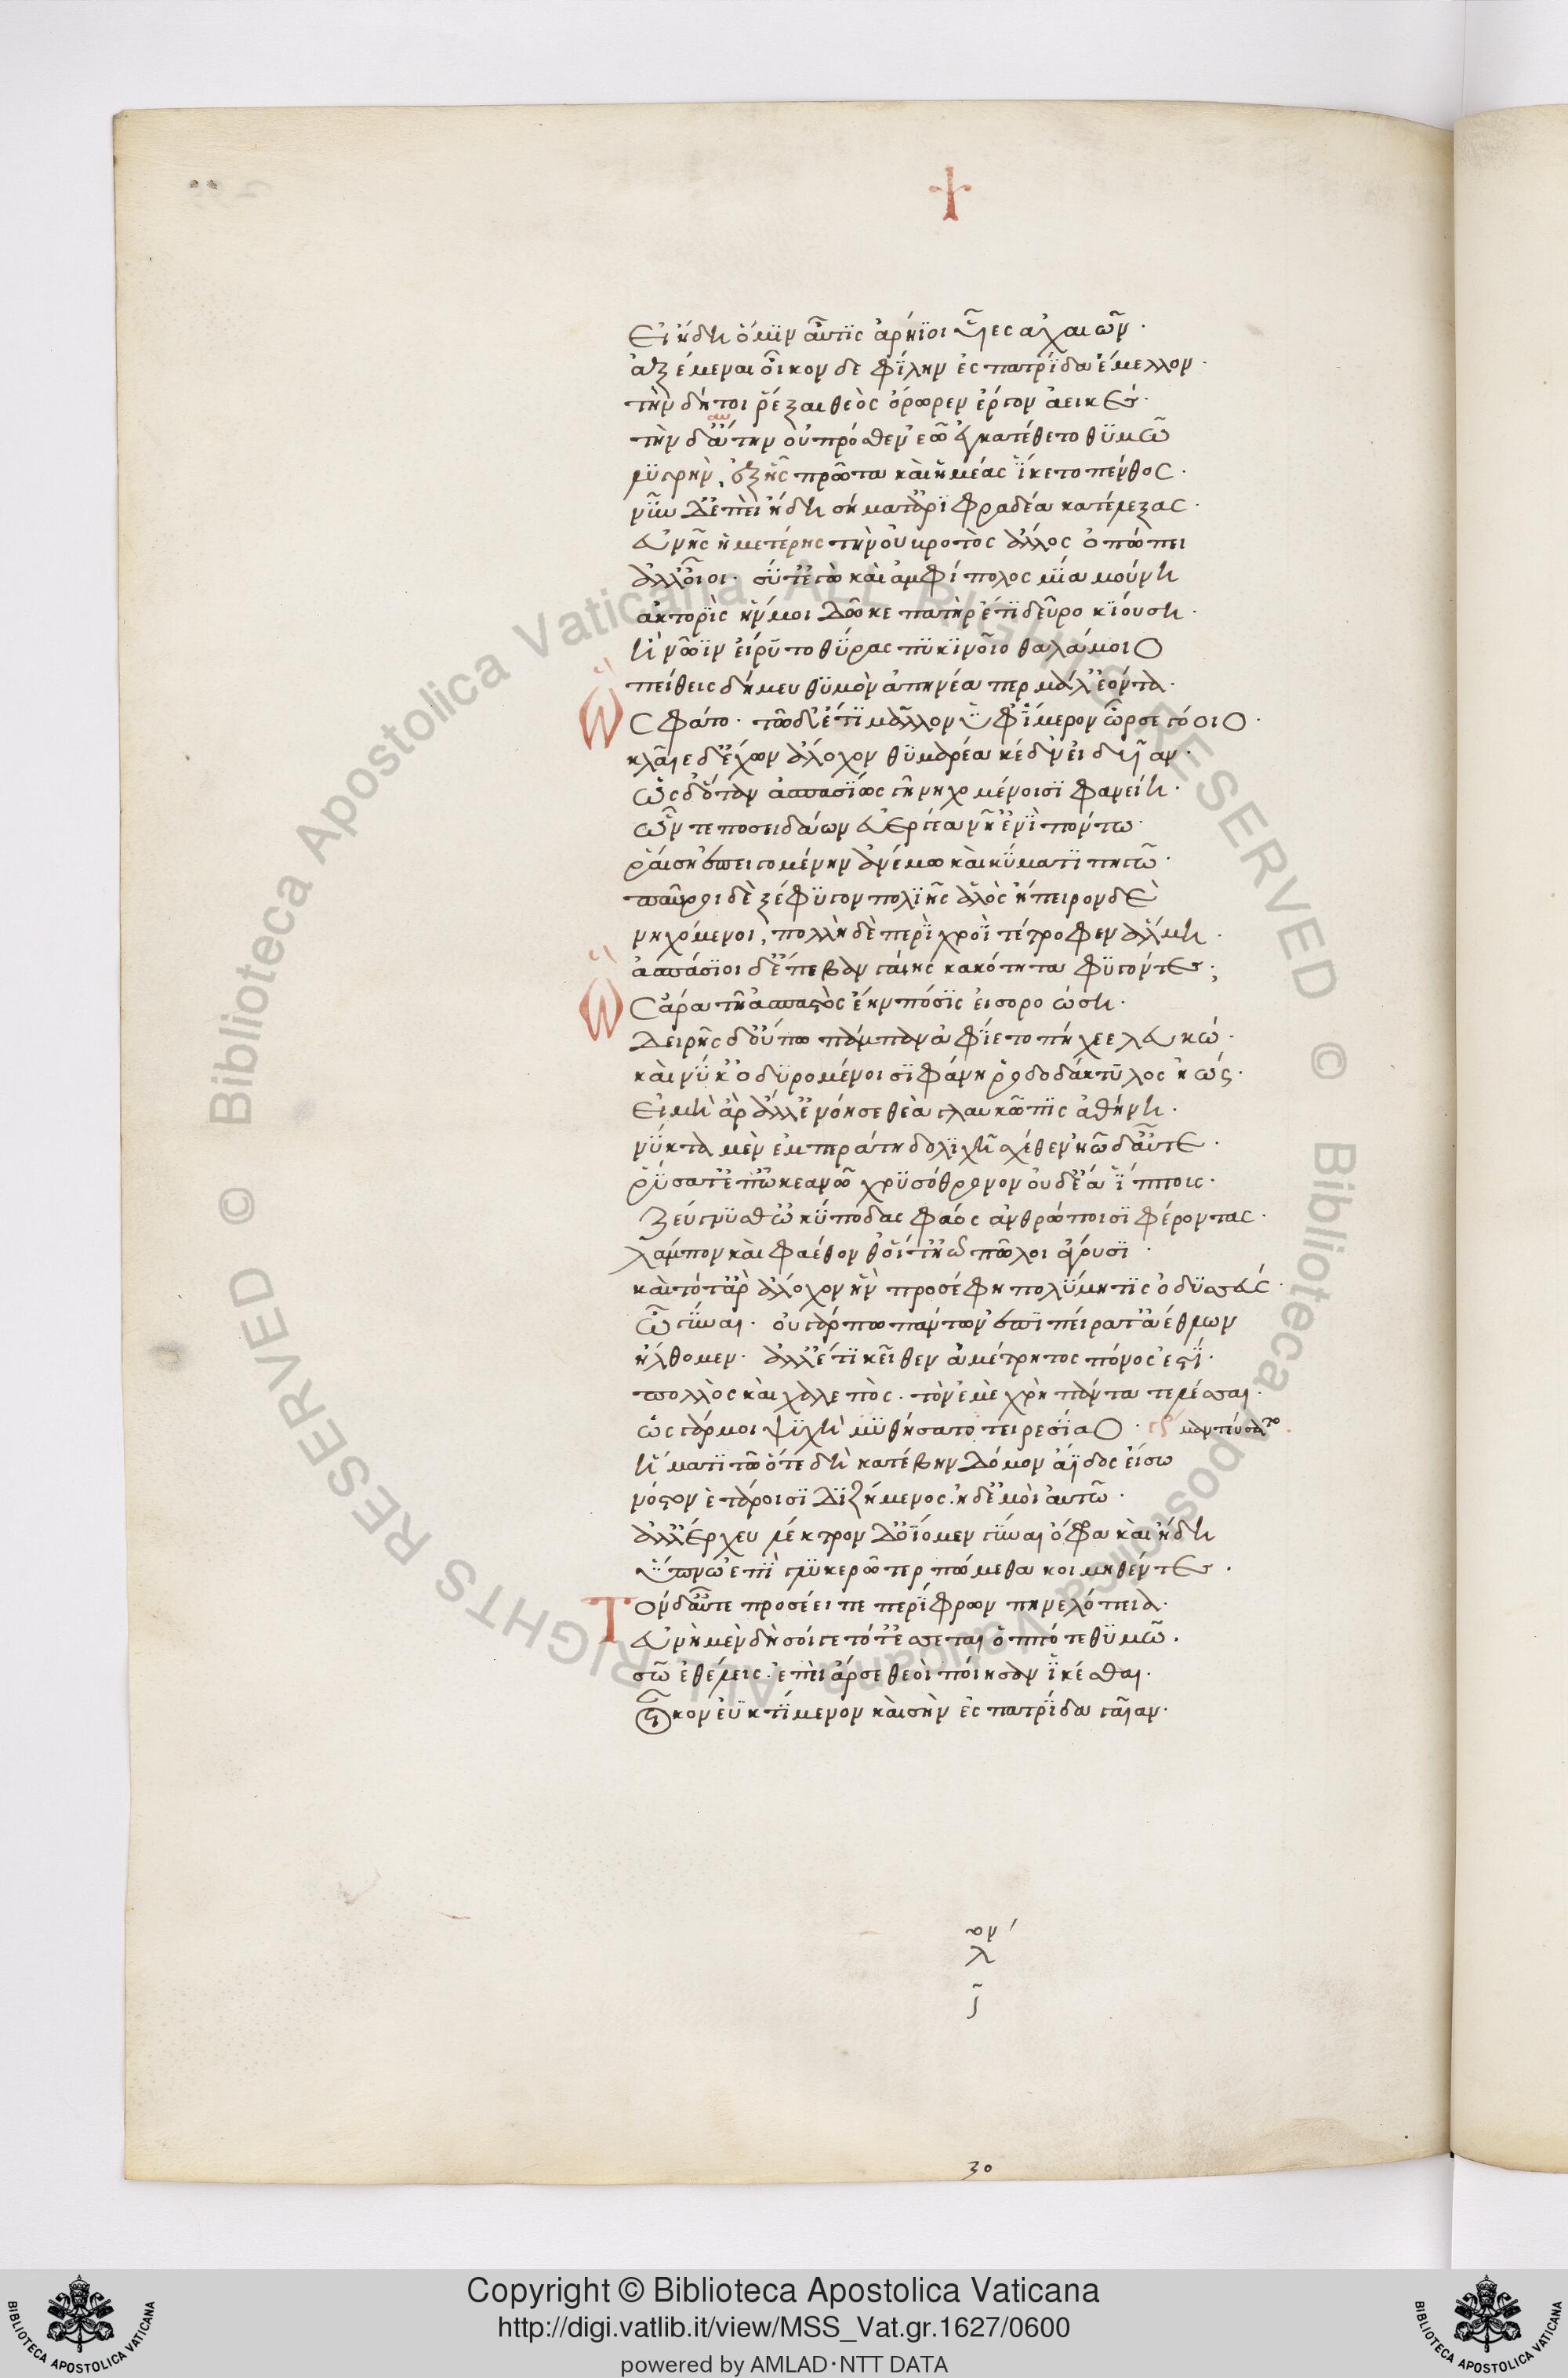 †
Εἰ ἤδη ὅ μϊν αὖτϊς ἀρήϊοι υἷες ἀχαιῶν·
ἀξέμεναι οἶκον δε φΐλην ἐς πατρΐδα ἔμελλον·
τὴν δή τοι ῥέξαι θεὸς ὄρωρεν ἔργον ἀεικές·
τὴν δ' αὐτὴν οὐ πρόσθεν ἑῶ ἐγκατέθετο θϋμῶ
λϋγρὴν, ἐξ ἧς πρῶτα καὶ ἡμέας ἵκετο πένθος·
νῦν δ' ἐπεὶ ἤδη σήματ' ἀρϊφραδέα κατέλεξας·
εὐνῆς ἡμετέρης τὴν οὐ βροτὸς ἄλλος ὀπώπει
ἀλλ' οἶοι· σύ τ' ἐγὼ καὶ ἀμφίπολος μΐα μούνη
ἀκτορὶς ἥν μοι δῶκε πατὴρ ἔτϊ δεῦρο κϊούση·
ἣ νῶϊν εἴρϋτο θύρας πϋκϊνοῖο θαλάμοιο
πείθεις δή μευ θϋμὸν ἀπηνέα περ μάλ' ἐόντα·
Ὣς φάτο· τῶ δ' ἔτϊ μᾶλλον ὑφ' ἵμερον ὦρσε γόοιο·
κλαῖε δ' ἔχων ἄλοχον θϋμαρέα κέδν' εἰδυῖαν·
ὡς δ' ὅταν ἀσπασΐως γῆ νηχομένοισϊ φανείη·
ὧν τε ποσειδάων εὐεργέα νῆ' ἐνὶ πόντω·
ῥαίση ἐπειγομένην ἀνέμω καὶ κύματϊ πηγῶ·
παῦροι δ' ἐξέφϋγον πολϊῆς ἁλὸς ἤπειρον δὲ
νηχόμενοι, πολλὴ δὲ περὶ χροῒ τέτροφεν ἅλμη·
ἀσπάσϊοι δ' ἐπέβαν γαίης κακότητα φϋγόντες;
Ὣς ἄρα τῆ ἀσπαστὸς ἔην πόσϊς εἰσοροώση·
δειρῆς δ' οὔπω πάμπαν ἀφΐετο πήχεε λευκώ·
καί νύ κ' ὀδϋρομένοισϊ φάνη ῥοδοδάκτϋλος ἠώς·
Εἰ μὴ ἄρ' ἄλλ' ἐνόησε θεὰ γλαυκῶπϊς ἀθήνη·
νύκτα μὲν ἐν περάτη δολϊχὴ σχέθεν ἠῶ δ' αὖτε·
ῥύσατ' ἐπ' ὠκεανῶ χρϋσόθρονον οὐδ' ἔα ἵππους·
ζεύγνϋσθ' ὠκύποδας φάος ἀνθρώποισϊ φέροντας·
λάμπον καὶ φαέθονθ' οἵ τ' ἠῶ πῶλοι ἄγουσϊ·
καὶ τότ' ἄρ' ἄλοχον ἣν προσέφη πολύμητϊς ὀδϋσσεύς·
ὦ γύναι· οὐ γάρ πω πάντων ἐπὶ πείρατ' ἀέθλων
ἤλθομεν· ἀλλ' ἔτϊ κεῖθεν ἀμέτρητος πόνος ἐστΐ·
πολλὸς καὶ χαλεπὸς· τὸν ἐμὲ χρὴ πάντα τελέσσαι·
ὡς γάρ μοι ψϋχὴ μϋθήσατο τειρεσΐαο· γρ μαντεύσατο
ἤματϊ τῶ ὅτε δὴ κατέβην δόμον ἄϊδος εἴσω
νόστον ἑτάροισϊ δϊζήμενος· ἠδ' ἐμοὶ αὐτῶ·
ἀλλ' ἔρχευ λέκτρον δ' ἴομεν γύναι ὄφρα καὶ ἤδη
ὕπνω ὑπὸ γλϋκερῶ ταρπώμεθα κοιμηθέντες·
Τὸν δ' αὖτε προσέειπε περΐφρων πηνελόπεια·
εὐνὴ μὲν δὴ σοί γε τότ' ἔσσεται ὁππότε θϋμῶ·
σῶ ἐθέλεις· ἐπεὶ ἄρ σε θεοὶ ποίησαν ἱκέσθαι·
οἶκον ἐϋκτίμενον καὶ σὴν ἐς πατρΐδα γαῖαν·
30
Copyright © Biblioteca Apostolica Vaticana
http://digi.vatlib.it/view/MSS_Vat.gr.1627/0600
powered by AMLAD·NTT DATA